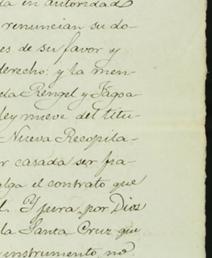 da en autoridad
renuncian su do
es de su favor y
derecho: y la men
ela Rengel y Fagoa
ley nueve del titu
Nueva Recopila-
r casada ser fra
alga el contrato que
Y jura por Dios
la Santa Cruz que
instrumento no